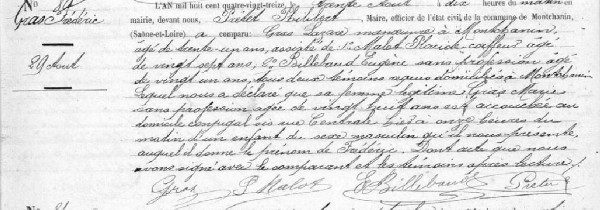 L'AN mil huit cent quatre-vingt-treize, le trente Aout, dix heures du matin en
No
Gras Frédéric
mairie, devant nous, Pretet Philibert Maire, officier de l'état civil de la commune de Montchanin,
29 Aout
(Saône-et-Loire) a comparu: Gras Lazare menuisier à Montchanin
agé de trente-un ans, assisté de 1o Malot Placide coiffeur agé
de vingt sept ans, 2o Billebaud Eugène sans profession agé
de vingt un ans, tous deux témoins majeurs domiciliés à Montchanin
Lequel nous a déclaré que sa femme légitime Gras Marie
sans profession agée de vingt huit ans est accouchée au
domicile conjugal sis rue Centrale hier à onze heures du
matin d'un enfant de sexe masculin qu'il nous présente,
auquel il donne le prénom de Frédéric. Dont acte que nous
avons signé avec le comparant et les témoins après lecture.
Gras P Malot E Billebaud Pretet